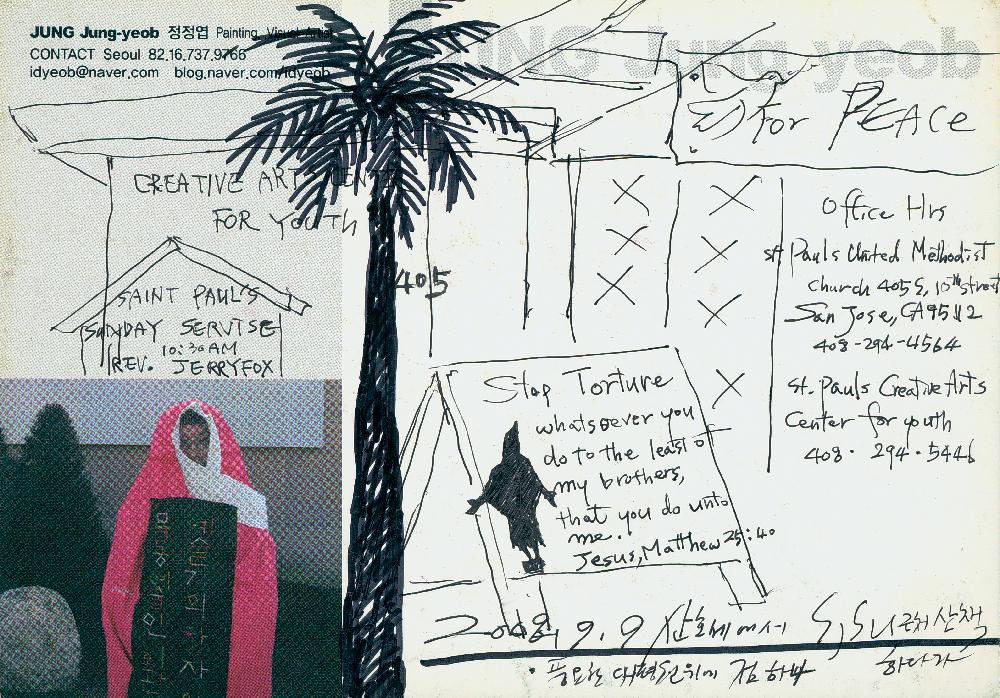 JUNG Jung-yeob 정정엽 Painting, Visual Artist
CONTACT Seoul 82.16.737.9766
idyeob@naver.com blog.naver.com/idyeob
JUNG Jung-yeob
For PEACE
CREATIVE ART CENTE
FOR YOUTH
405
SAINT PAUL'S
SUNDAY SERVISE
10:30 AM
REV. JERRYFOX
Office Hrs
st Paul's United Methodist
Church 405 S, 10th street
San Jose, CA 95112
408-294-4564
st. Paul's Creative Arts
Center for youth
408 · 294 · 5446
Stop Torture
whatsoever you
do to the least of
my brothers,
that you do unto
me.
Jesus, Matthew 25:40
2008, 9. 9 산호세에서 SJSU 근처 산책
하다가